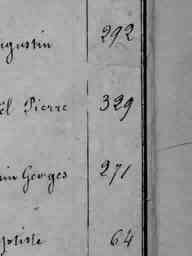 ugustin 292
ël Pierre 329
in Georges 271
ptiste 64